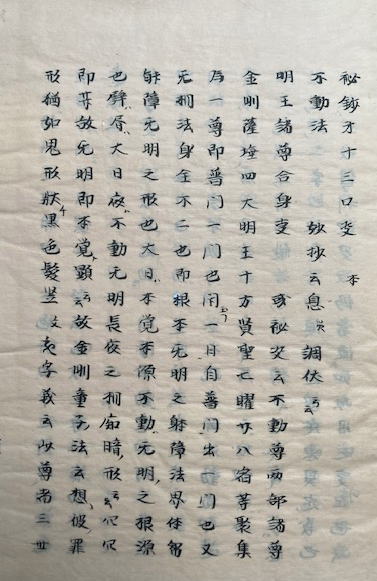 秘鈔才十三口决 本
不動法 妙抄云息災調伏云云
明王諸尊合身变 或秘文云不動尊兩部諸尊
金剛薩埵四大明王十方賢聖七曜廿八宿等聚集
一尊即普门一门也一日自普门出门也又
无相法身全不二也即根本无明之射障法界体
能障无明之形也大日本覚本源不動无明之根源
也大日不動无明長夜之相暗形云云
即等故无明即本覚顯云云故金剛童子法云想罪
形猶如鬼形状黒色髪竖字義云此尊者三世